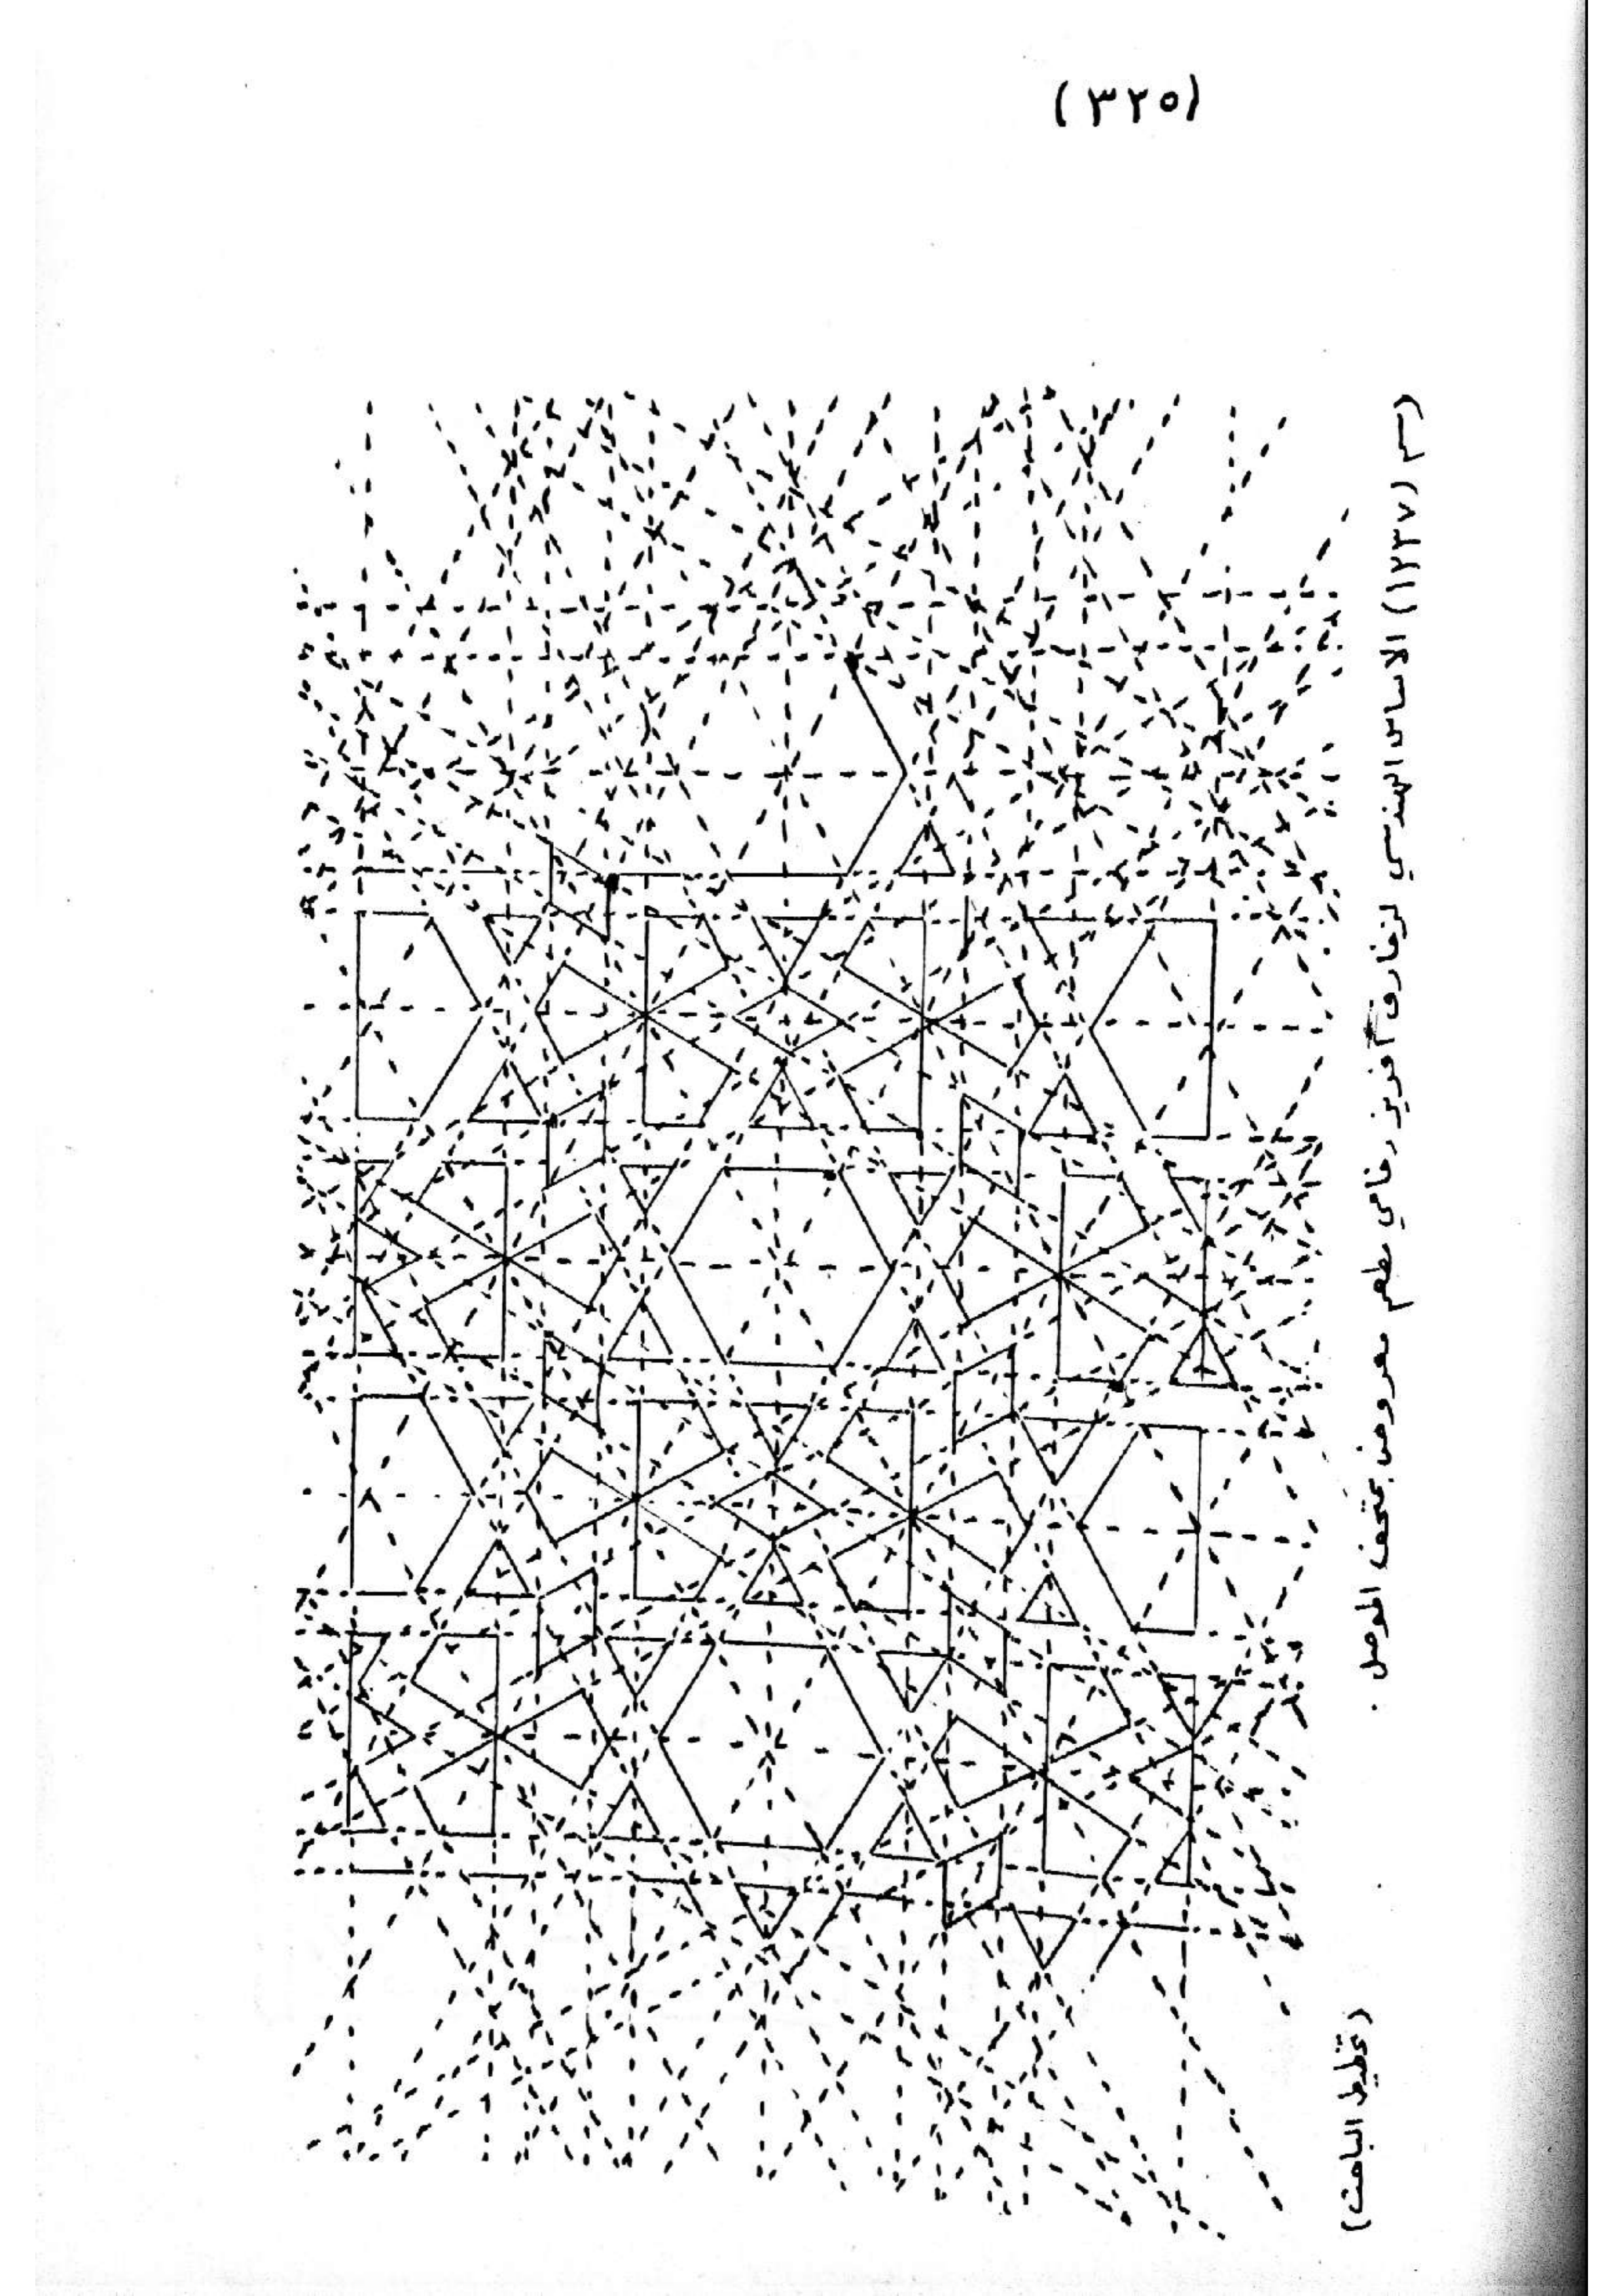 (٣٢٥)
(رسم (١٢٣٧) الاساس الهندسي لزخارف افريز رخامي مطعم معروض بمتحف الموصل .
(تخطيط الباحث)